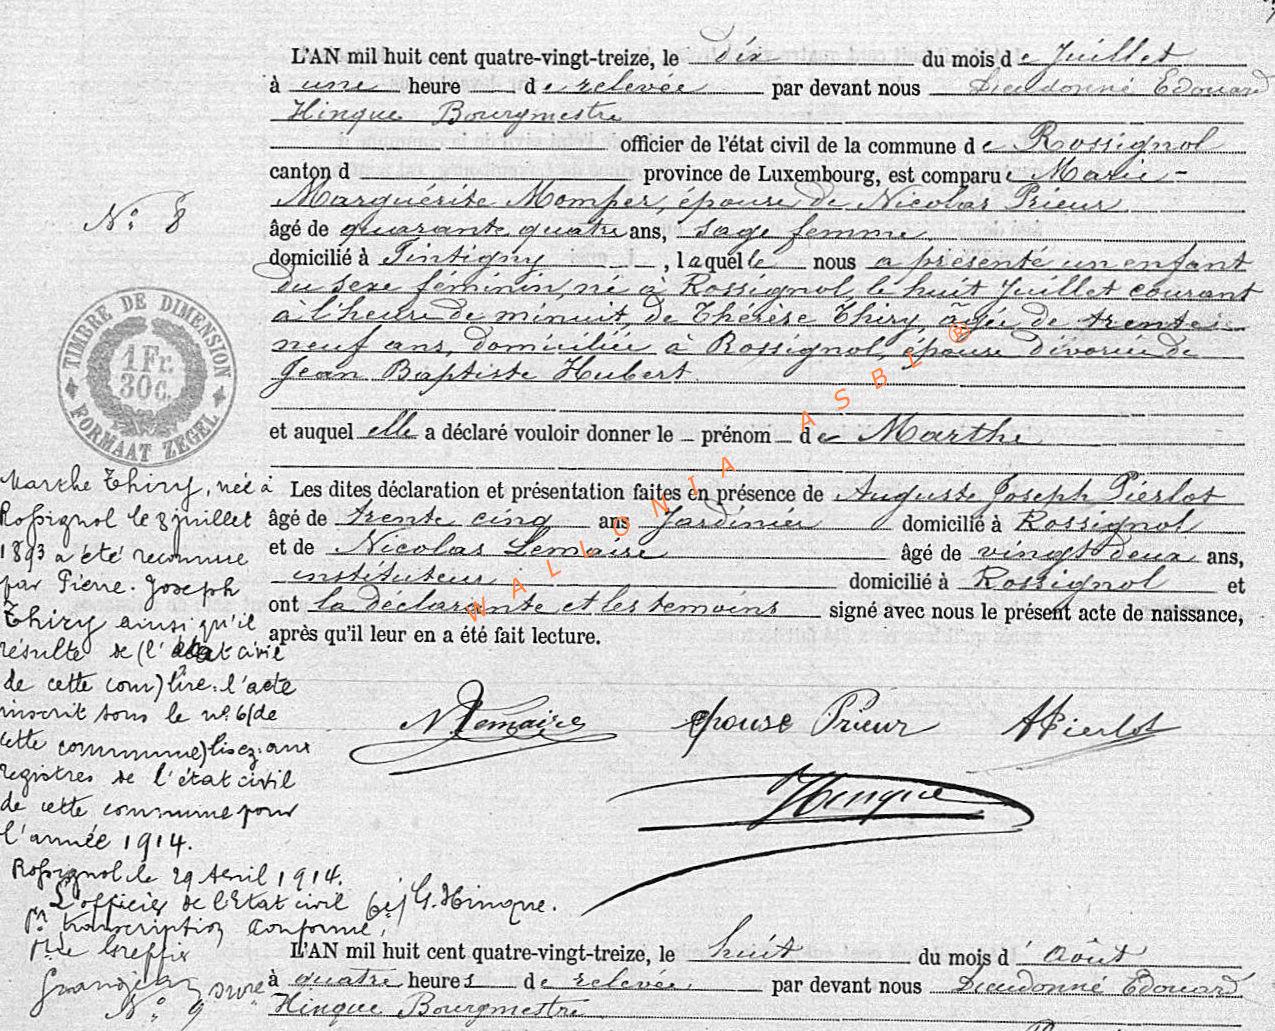 L'AN mil huit cent quatre-vingt-treize, le dix du mois de Juillet
à une heure de relevée par devant nous Dieudonné Edouard
Hinque Bourgmestre
officier de l'état civil de la commune de Rossignol
canton d province de Luxembourg, est comparue Marie-
Marguérite Momper, épouse de Nicolas Prieur
N° 8
âgé de quarante quatre ans, sage femme
domicilié à Tintigny, laquelle nous a présenté un enfant
du sexe féminin, né à Rossignol, le huit Juillet courant
à l'heure de minuit, de Thérèse Thiry, âgée de trente
neuf ans, domiciliée à Rossignol, épouse divorcée de
Jean Baptiste Hubert
TIMBRE DE DIMENSION
1 Fr.
30 C.
FORMAAT ZEGEL
et auquel elle a déclaré vouloir donner le prénom de Marthe
Les dites déclaration et présentation faites en présence de Auguste Joseph Pierlot
âgé de trente cinq ans Jardinier domicilié à Rossignol
et de Nicolas Lemaire âgé de vingt deux ans,
instituteur domicilié à Rossignol et
ont la déclarante et les temoins signé avec nous le présent acte de naissance,
après qu'il leur en a été fait lecture.
WALLONIA ASBL ®
Marthe Thiry, née à
Rossignol le 8 juillet
1893 a été reconnue
par Pierre-Joseph
Thiry ainsi qu'il
résulte de (l'état civil
de cette com) lire: l'acte
inscrit sous le n° 6 (de
cette commune) lisez: aux
registres de l'état civil
de cette commune pour
l'année 1914.
Rossignol le 29 Avril 1914.
L'officier de l'Etat civil (sé) G. Hinque.
Pr transcription conforme,
Le Greffier
N. Lemaire épouse Prieur A Pierlot
Hinque
L'AN mil huit cent quatre-vingt-treize, le huit du mois d'Août
N° 9
à quatre heures de relevée par devant nous Dieudonné Edouard
Hinque Bourgmestre